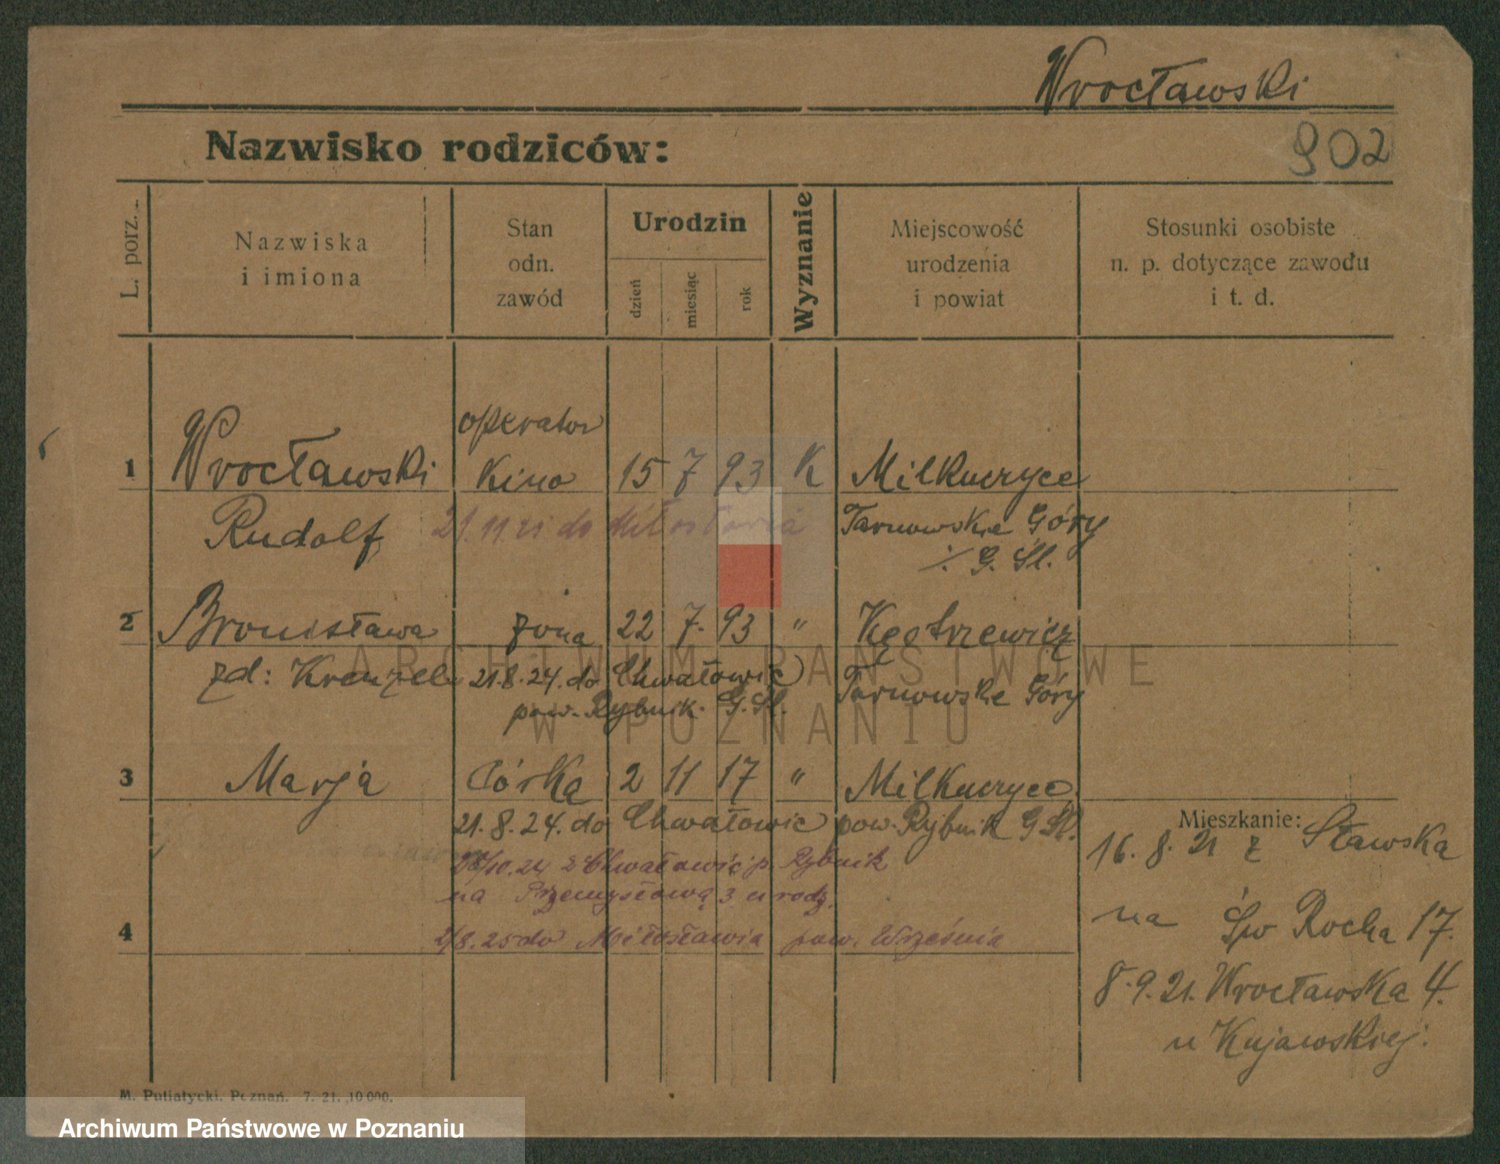 Wrocławski
Nazwisko rodziców:
902
L. porz.
Nazwiska
i imiona
Stan
odn.
zawód
Urodzin
dzień
miesiąc
rok
Wyznanie
Miejscowość
urodzenia
i powiat
Stosunki osobiste
n. p. dotyczące zawodu
i t. d.
operator
1 Wrocławski Kino 15 7 93 K Milkuczyce
Rudolf 21.11.21 do Miłosławia Tarnowskie Góry
G. Śl.
2 Bronisława żona 22 7. 93 " 
zd: Krenzel 21.8.24. do Chwałowic Tarnowskie Góry
pow. Rybnik. G. Śl.
3 Marja córka 2 11 17 " Milkuczyce
21.8.24. do Chwałowic pow. Rybnik G Śl.
Mieszkanie:
16. 8. 21 z Sławska
10.24 z Chwałowic p. Rybnik
na Przemysłową 3 u rodz.
na Św Rocha 17.
4 8.25 do Miłosławia pow. Września
8.9.21. Wrocławska 4.
u Kujawskiej.
M. Putiatycki, Poznań. 7.-21. 10 000.
ARCHIWUM PAŃSTWOWE
W POZNANIU
Archiwum Państwowe w Poznaniu